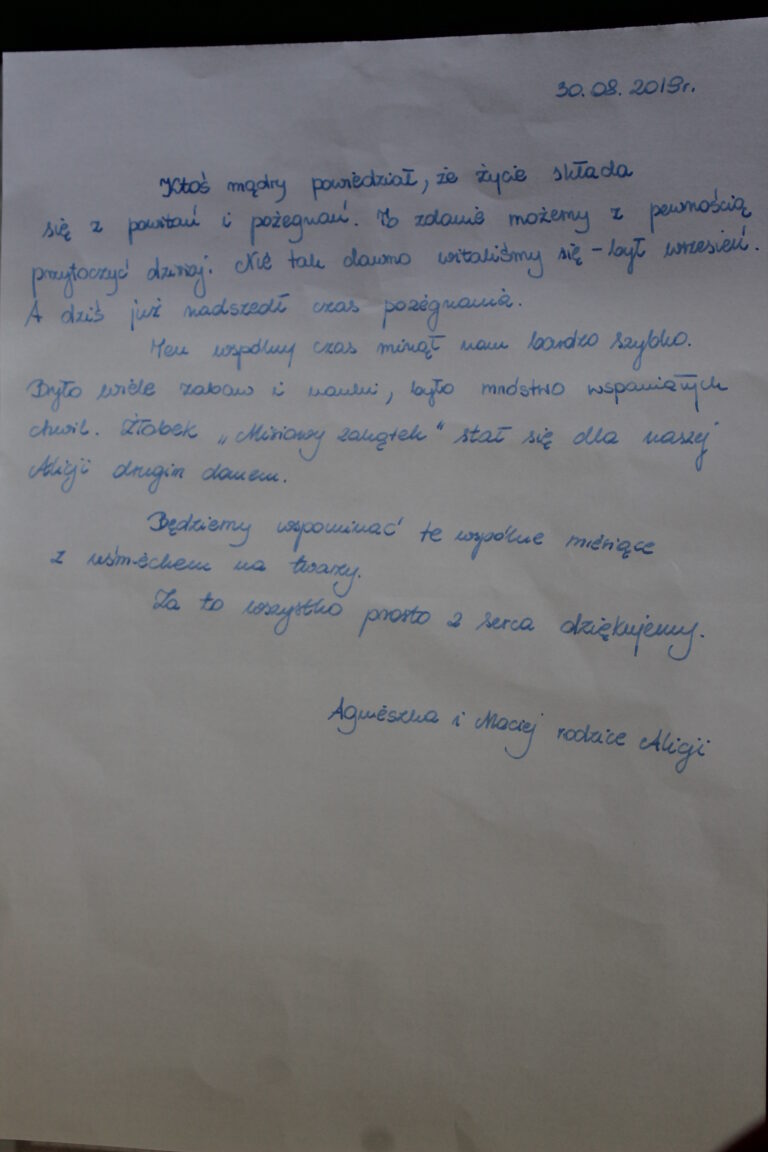 30.08.2019r.
Ktoś mądry powiedział, że życie składa
się z powitań i pożegnań. To zdanie możemy z pewnością
przytoczyć dzisiaj. Nie tak dawno witaliśmy się - był wrzesień.
A dziś już nadszedł czas pożegnania.
Ten wspólny czas minął nam bardzo szybko.
Było wiele zabaw i nauki, było mnóstwo wspaniałych
chwil. Żłobek „Misiowy zakątek" stał się dla naszej
Alicji drugim domem.
Będziemy wspominać te wspólne miesiące
z uśmiechem na twarzy.
Za to wszystko prosto z serca dziękujemy.
Agnieszka i Maciej rodzice Alicji